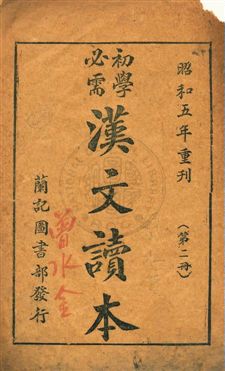 昭和五年重刊
(第二冊)
初學
必需
漢文讀本
曾水全
蘭記圖書部發行